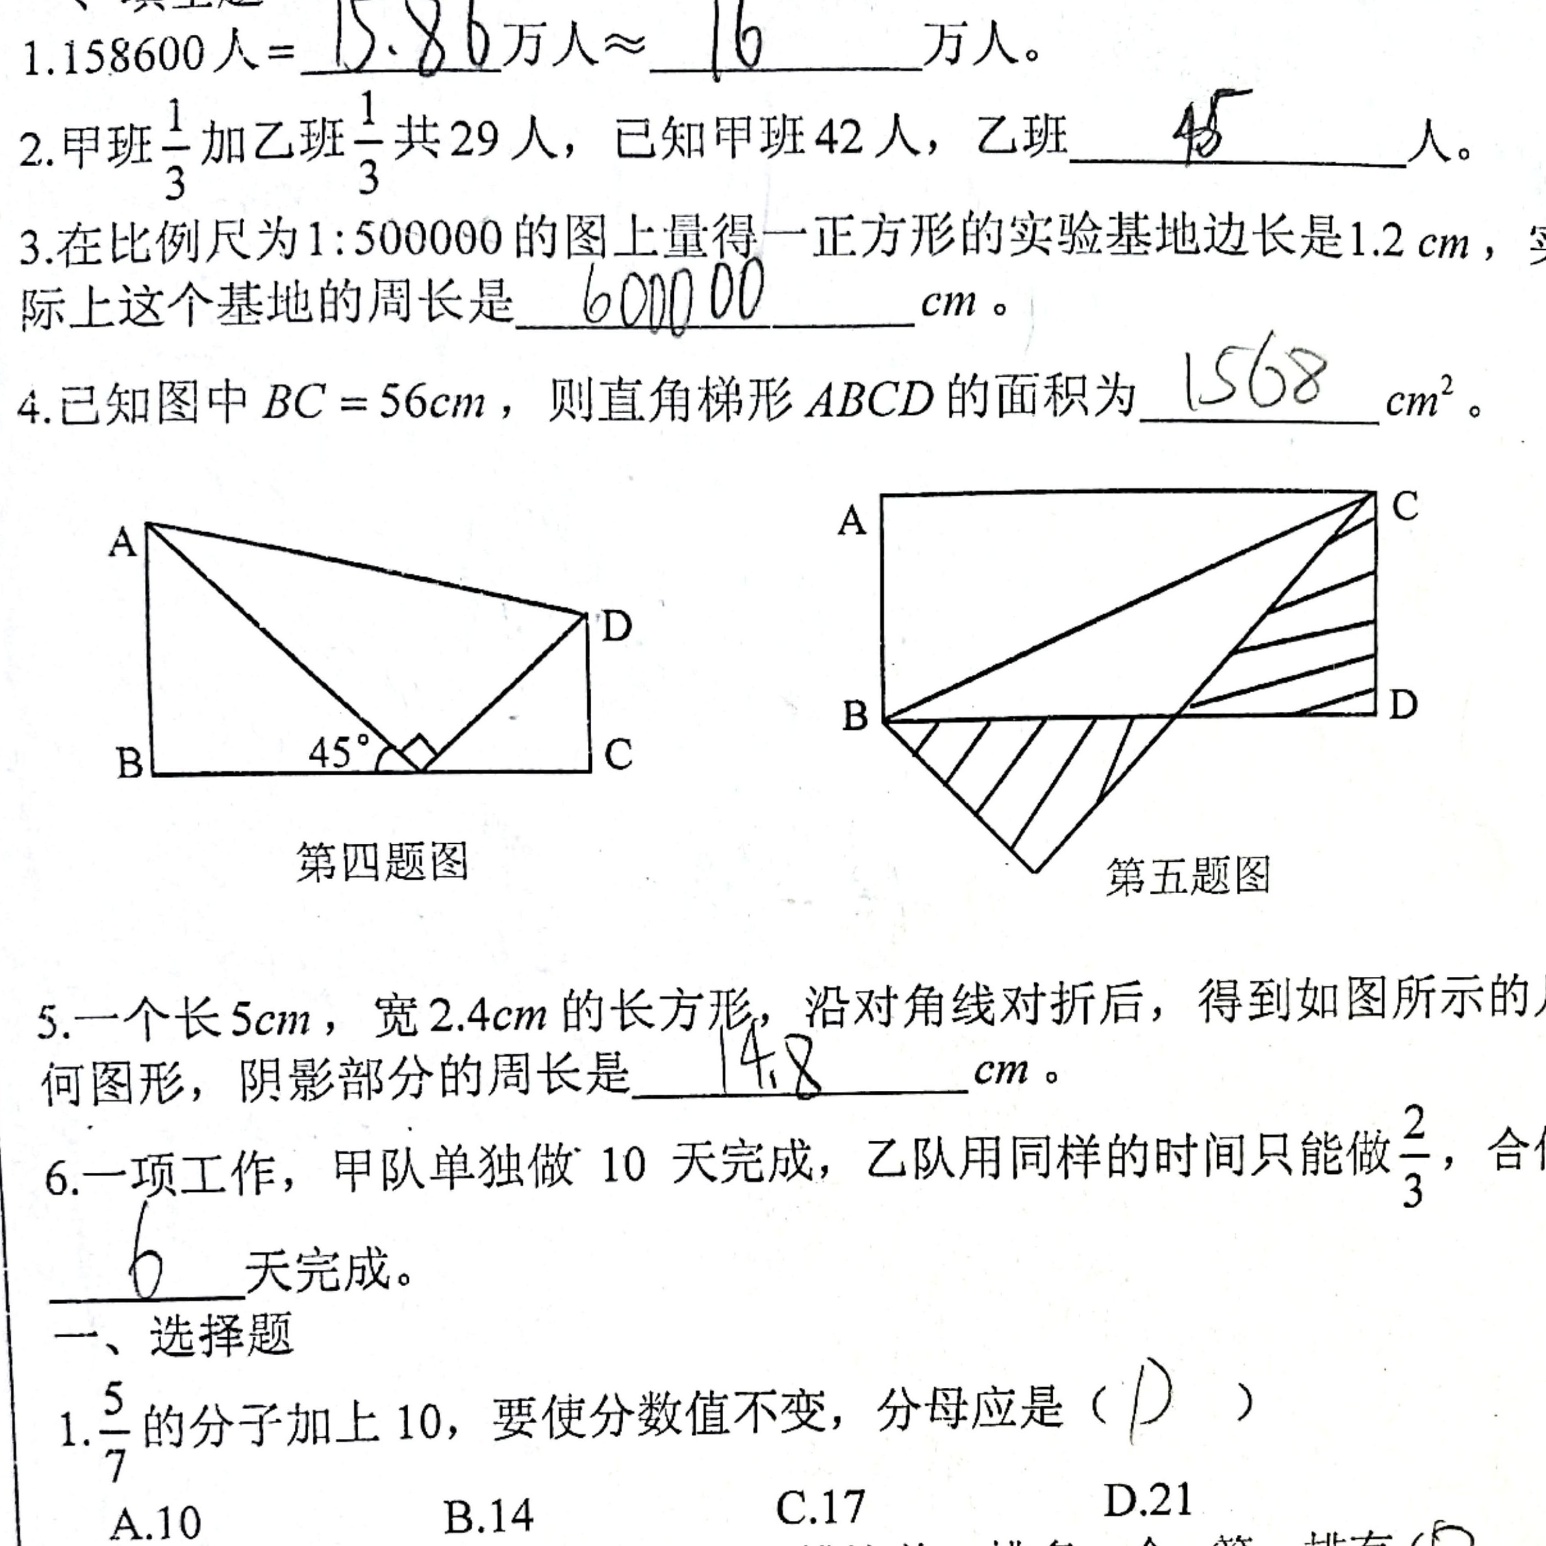 1.158600人=15.86万人≈16万人。
2.甲班1/3加乙班1/3共29人，已知甲班42人，乙班45人。
3.在比例尺为1:500000的图上量得一正方形的实验基地边长是1.2 cm，实
际上这个基地的周长是600000cm。
4.已知图中BC=56cm，则直角梯形ABCD的面积为1568cm²。
A
D
B
45°
C
第四题图
A
C
B
D
第五题图
5.一个长5cm，宽2.4cm的长方形，沿对角线对折后，得到如图所示的几
何图形，阴影部分的周长是14.8cm。
6.一项工作，甲队单独做 10 天完成，乙队用同样的时间只能做2/3，合作
6天完成。
一、选择题
1.5/7的分子加上10，要使分数值不变，分母应是（D）
A.10 B.14 C.17 D.21